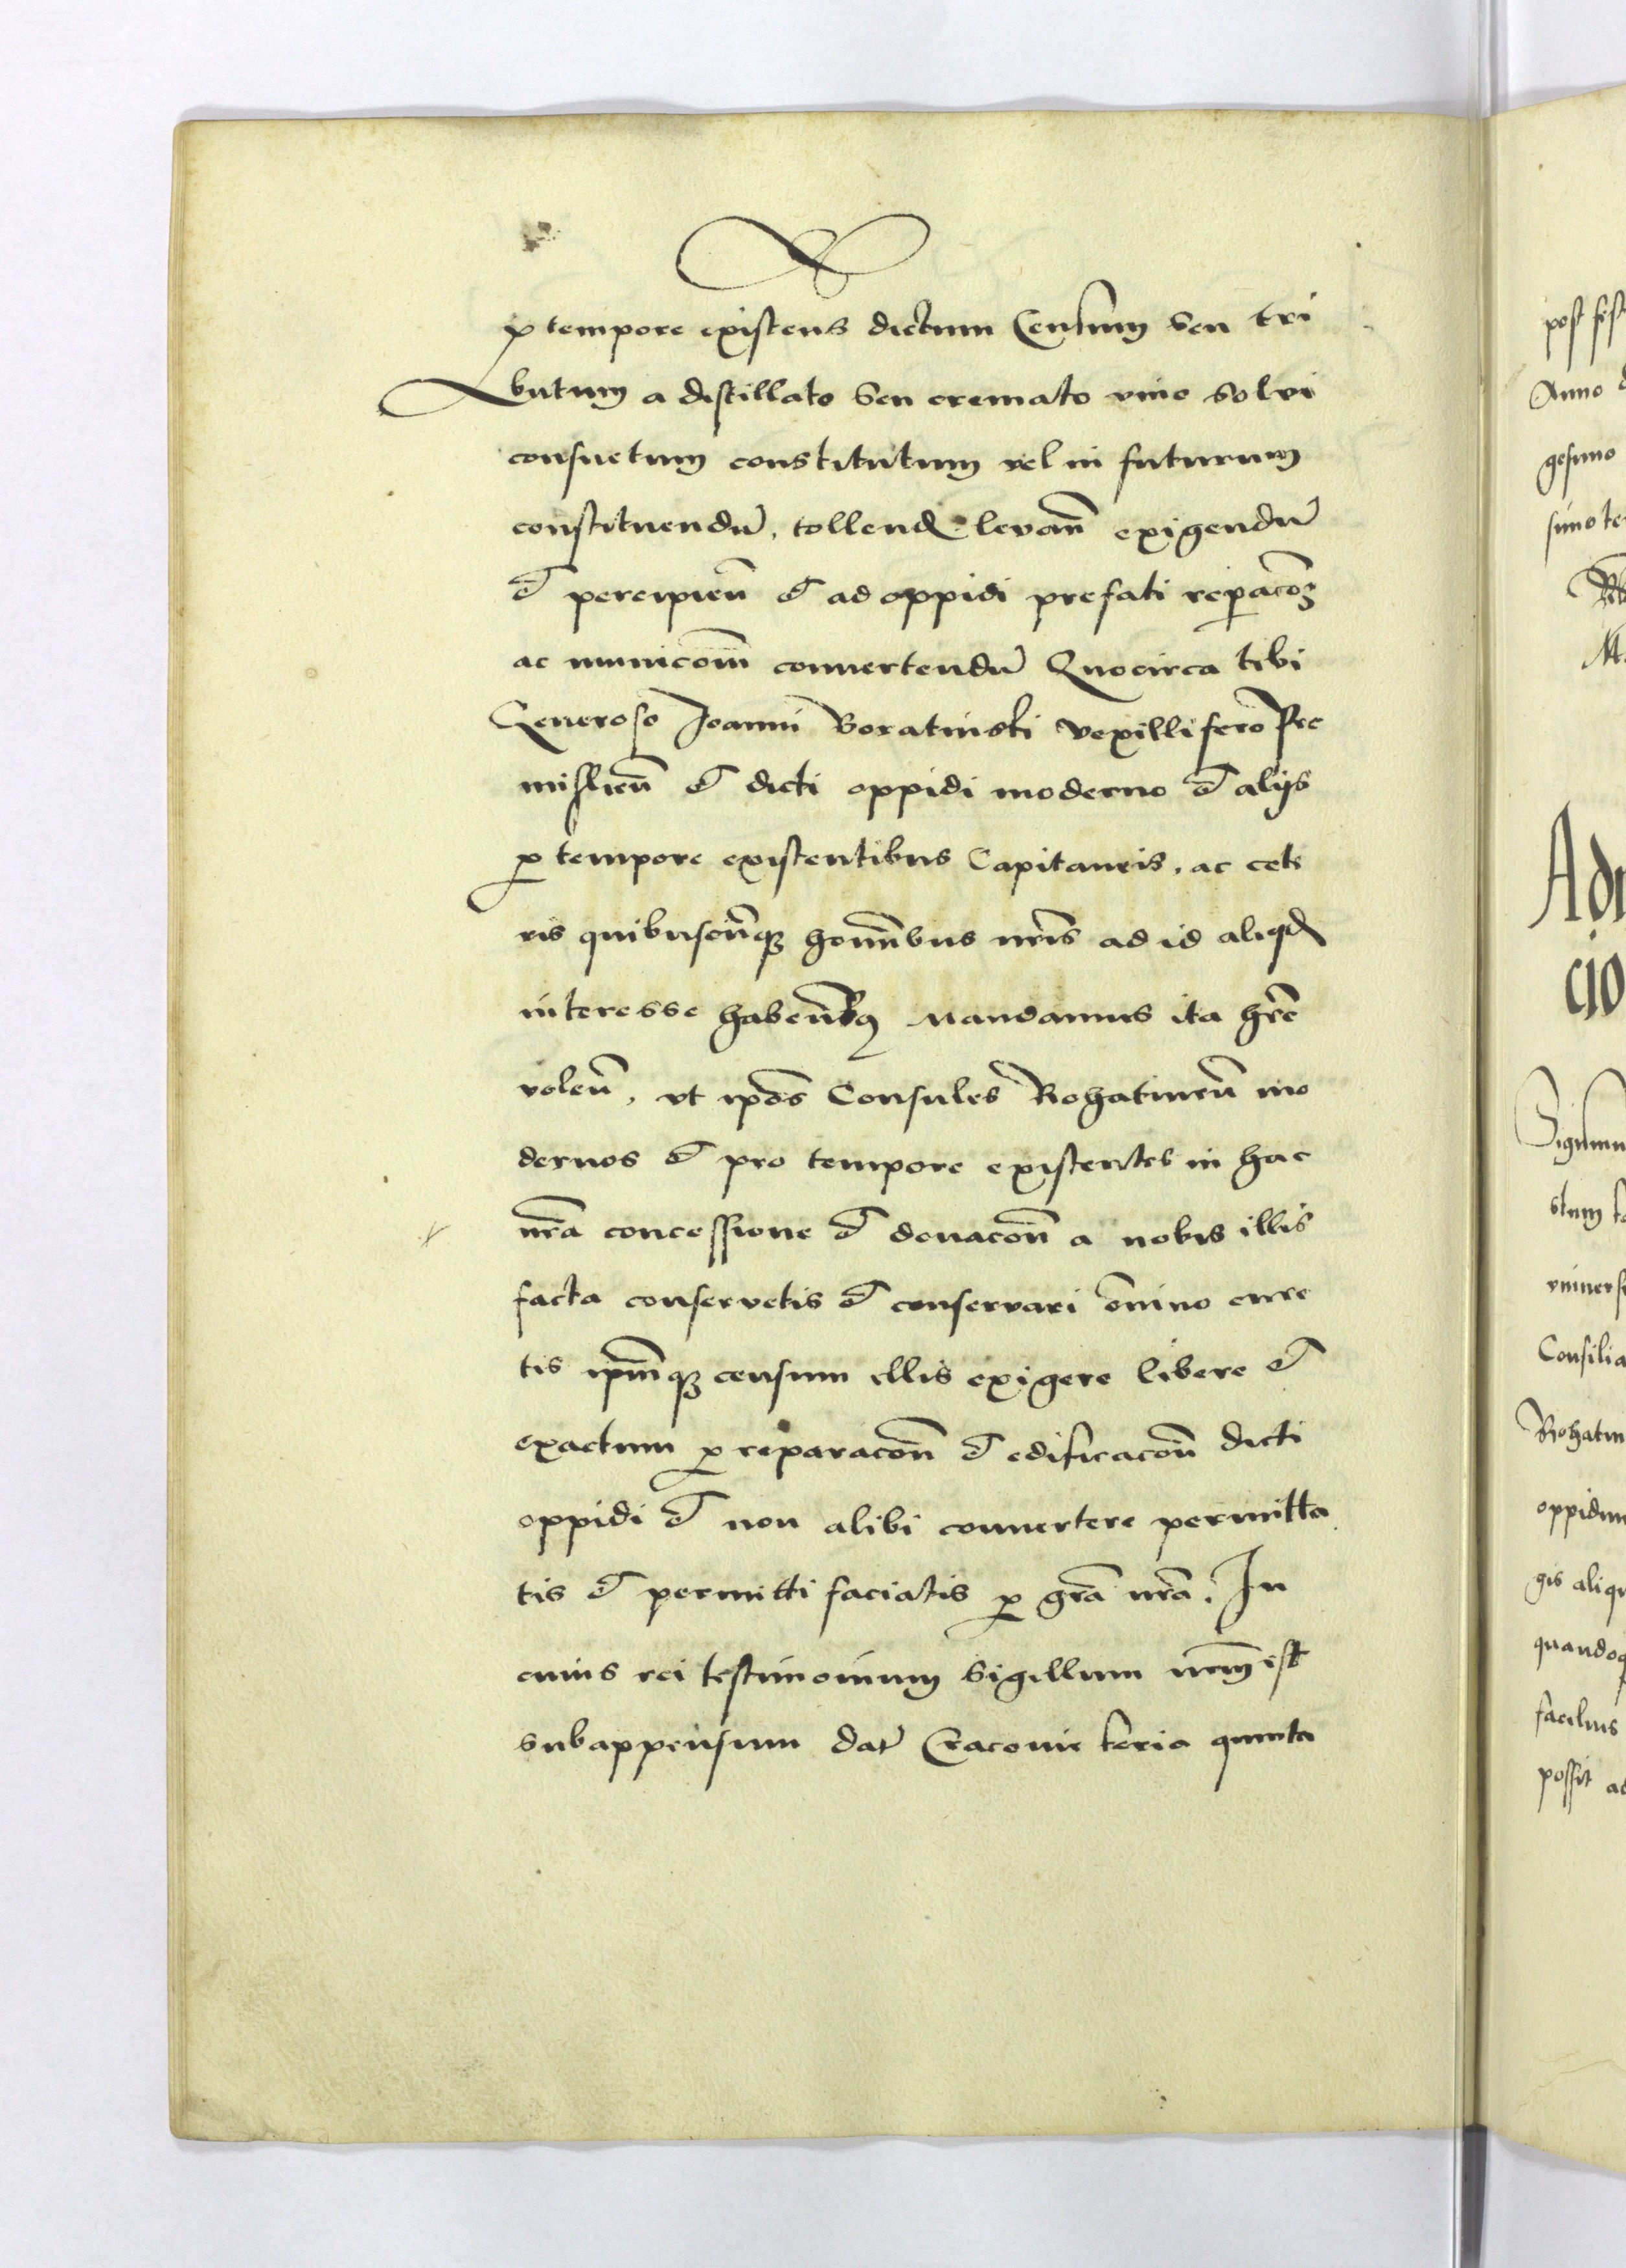 p tempore existens dictum Censum seu tri
butum a distillato seu cremato vino solvi
consuetum constitutum vel in futurum
constituendu, tollend levan exigendu
et percipien et ad oppidi prefati reparacoꝫ
ac municom convertendu Quocirca tibi
Generoso Joanni Boratinski vexillifero Pre
mislien et dicti oppidi moderno et alijs
p tempore existentibus Capitaneis, ac cete
ris quibuscunqꝫ hominibus nris ad id aliqd
interesse habentibꝫ Mandamus ita hre
volen, vt ipos Consules Rohatinen mo
dernos et pro tempore existentes in hac
nra concessione et donacon a nobis illis
facta conservetis et conservari omino cure
tis ipmqꝫ censum illis exigere libere et
exactum p reparacon et edificacon dicti
oppidi et non alibi convertere permitta
tis et permitti faciatis p gra nra. In
cuius rei testimonium sigillum nrm est
subappensum dat Cracovie feria quinta
post fest
Anno
gesimo
simo te
Adm
cio
Sigismu
stum
vniverse
Consilia
Rohatin
oppidum
gis aliqu
quandoq
facilius
possit ad